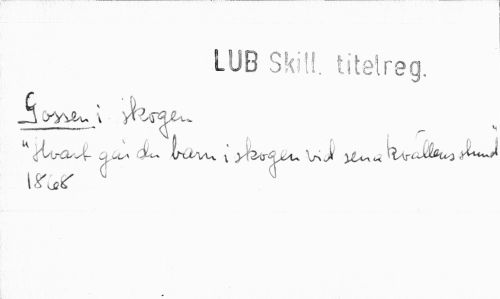 LUB Skill. titelreg.
Gossen i skogen
"Hvart går du barn i skogen vid sena kvällens stund"
1868